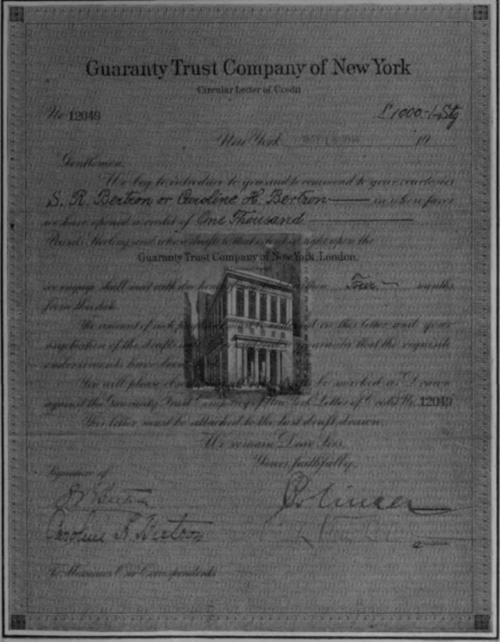 Guaranty Trust Company of New York
Circular Letter of Credit
No 12049 £1000.-/-Stg
New York 19
Gentlemen,
We beg to introduce to you and to commend to your courtesies
S. R. Bertron or Caroline H. Bertron in whose favor
we have opened a credit of One Thousand
Pounds Sterling, and whose drafts to that extent at sight upon the
Guaranty Trust Company of New York, London,
we engage shall meet with due honor if within Four months
from this date.
The amount of each on this letter and your
negotiation of the drafts that the requisite
endorsements have
You will please be marked as Drawn
against the Guaranty Trust Company of New York Letter of Credit No. 12049
This letter must be attached to the last draft drawn.
We remain, Dear Sirs,
Yours faithfully,
Signature of
Caroline H. Bertron
To Messieurs Our Correspondents